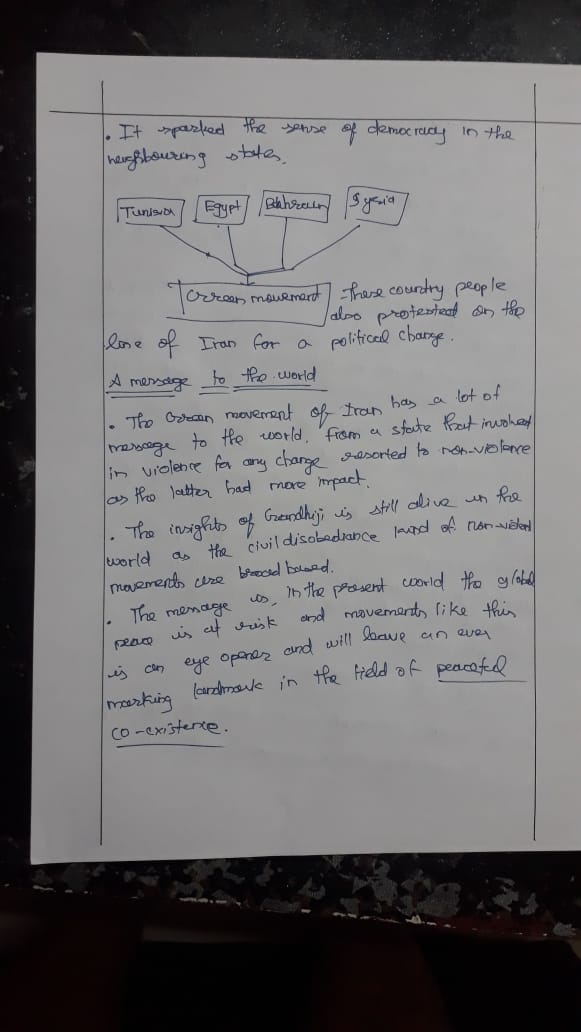 . It sparked the sense of democracy in the
neighbouring states.
Tunisia Egypt Bahrain Syria
Green movement → These country people
also protested on the
line of Iran for a political change.
A message to the world
. The Green movement of Iran has a lot of
message to the world, from a state that involved
in violence for any change resorted to non-violence
as the latter had more impact.
. The insights of Gandhiji is still alive in the
world as the civil disobedience kind of non-violent
movements are broad based.
. The message is, in the present world the global
peace is at risk and movements like this
is an eye opener and will leave an ever
marking landmark in the field of peaceful
co-existence.